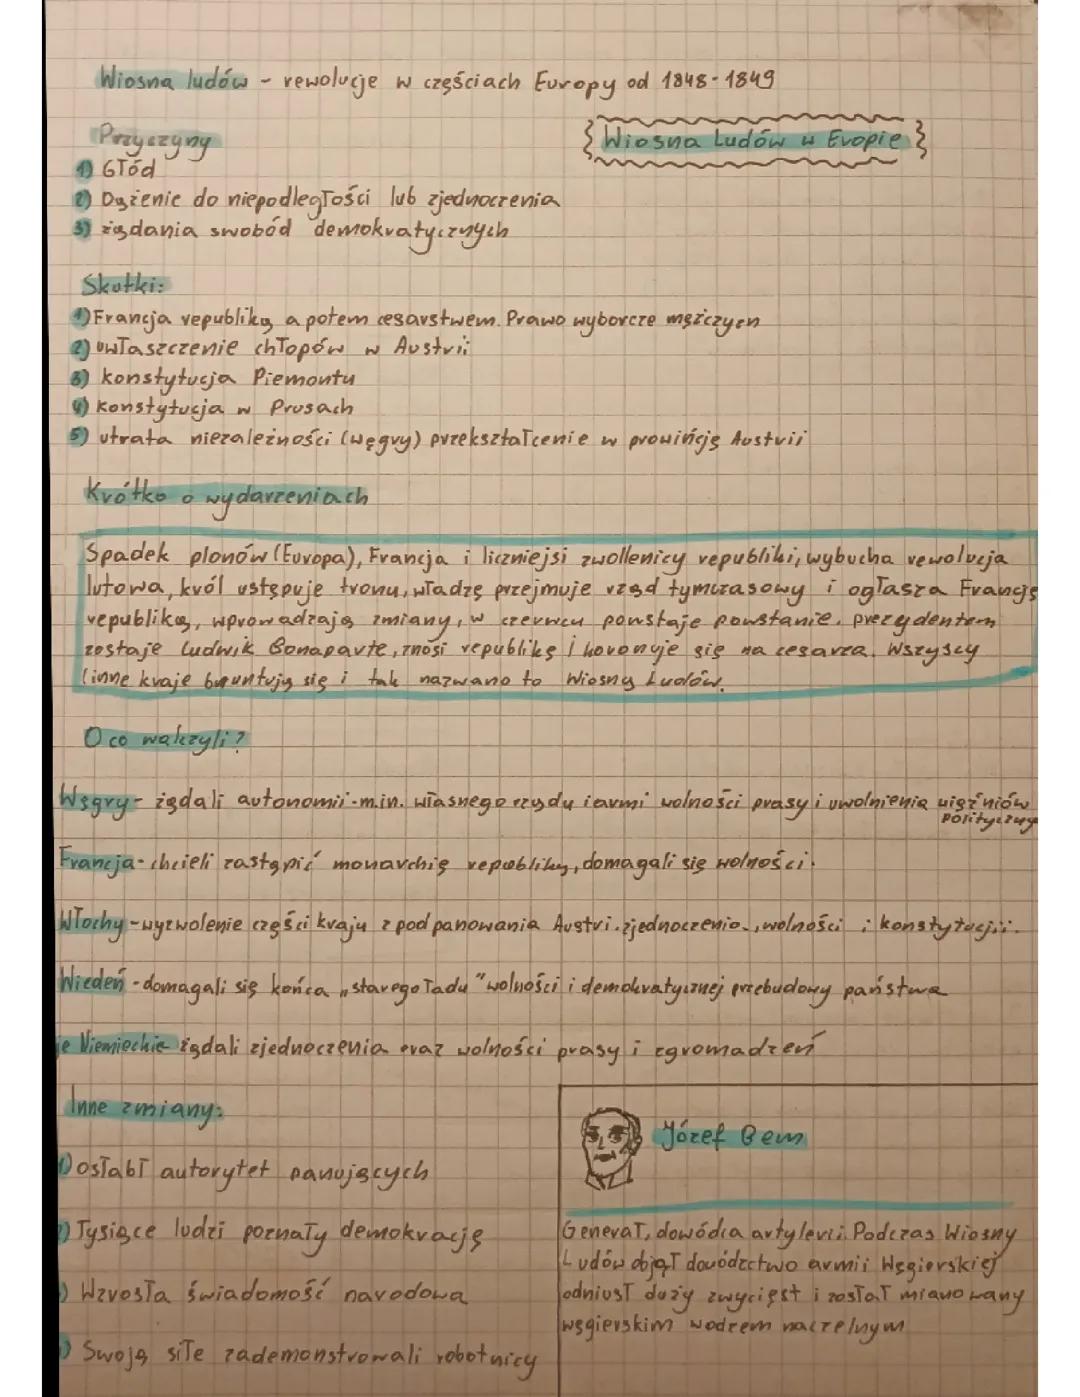 Wiosna ludów - rewolucje w częściach Europy od 1848-1849
{ Wiosna Ludów w Evopie }
Przyczyny
1) Głód
2) Dążenie do niepodległości lub zjednoczenia
3) żądania swobód demokratycznych
Skutki:
1) Francja republiką a potem cesarstwem. Prawo wyborcze mężczyzn
2) uwłaszczenie chłopów w Austrii
3) konstytucja Piemontu
4) konstytucja w Prusach
5) utrata niezależności (węgry) przekształcenie w prowińcję Austrii
Krótko o wydarzeniach
Spadek plonów (Europa), Francja i liczniejsi zwollenicy republiki, wybucha rewolucja
lutowa, król ustępuje tronu, władzę przejmuje rząd tymczasowy i ogłasza Francję
republiką, wprowadzają zmiany, w czerwcu powstaje powstanie. prezydentem
zostaje Ludwik Bonaparte, znosi republikę i koronuje się na cesarza. Wszyscy
(inne kraje buntują się i tak nazwano to Wiosną Ludów.
O co walczyli?
Węgry - żądali autonomii - m.in. własnego rządu i armi wolności prasy i uwolnienia więźniów
polityczny
Francja - chcieli zastąpić monarchię republiką, domagali się wolności.
Włochy - wyzwolenie części kraju z pod panowania Austri. zjednoczenia, wolności i konstytucjii.
Wiedeń - domagali się końca „starego ładu" wolności i demokratycznej przebudowy państwa
je Niemieckie żądali zjednoczenia oraz wolności prasy i zgromadzeń
Inne zmiany:
1) osłabł autorytet panujących
2) Tysiące ludzi poznały demokrację
) Wzrosła świadomość narodowa
) Swoją siłe zademonstrowali robotnicy
Józef Bem
Generał, dowódca artylerii. Podczas Wiosny
Ludów objął dowództwo armii Węgierskiej
odniusł duży zwycięst i został mianowany
węgierskim wodzem naczelnym